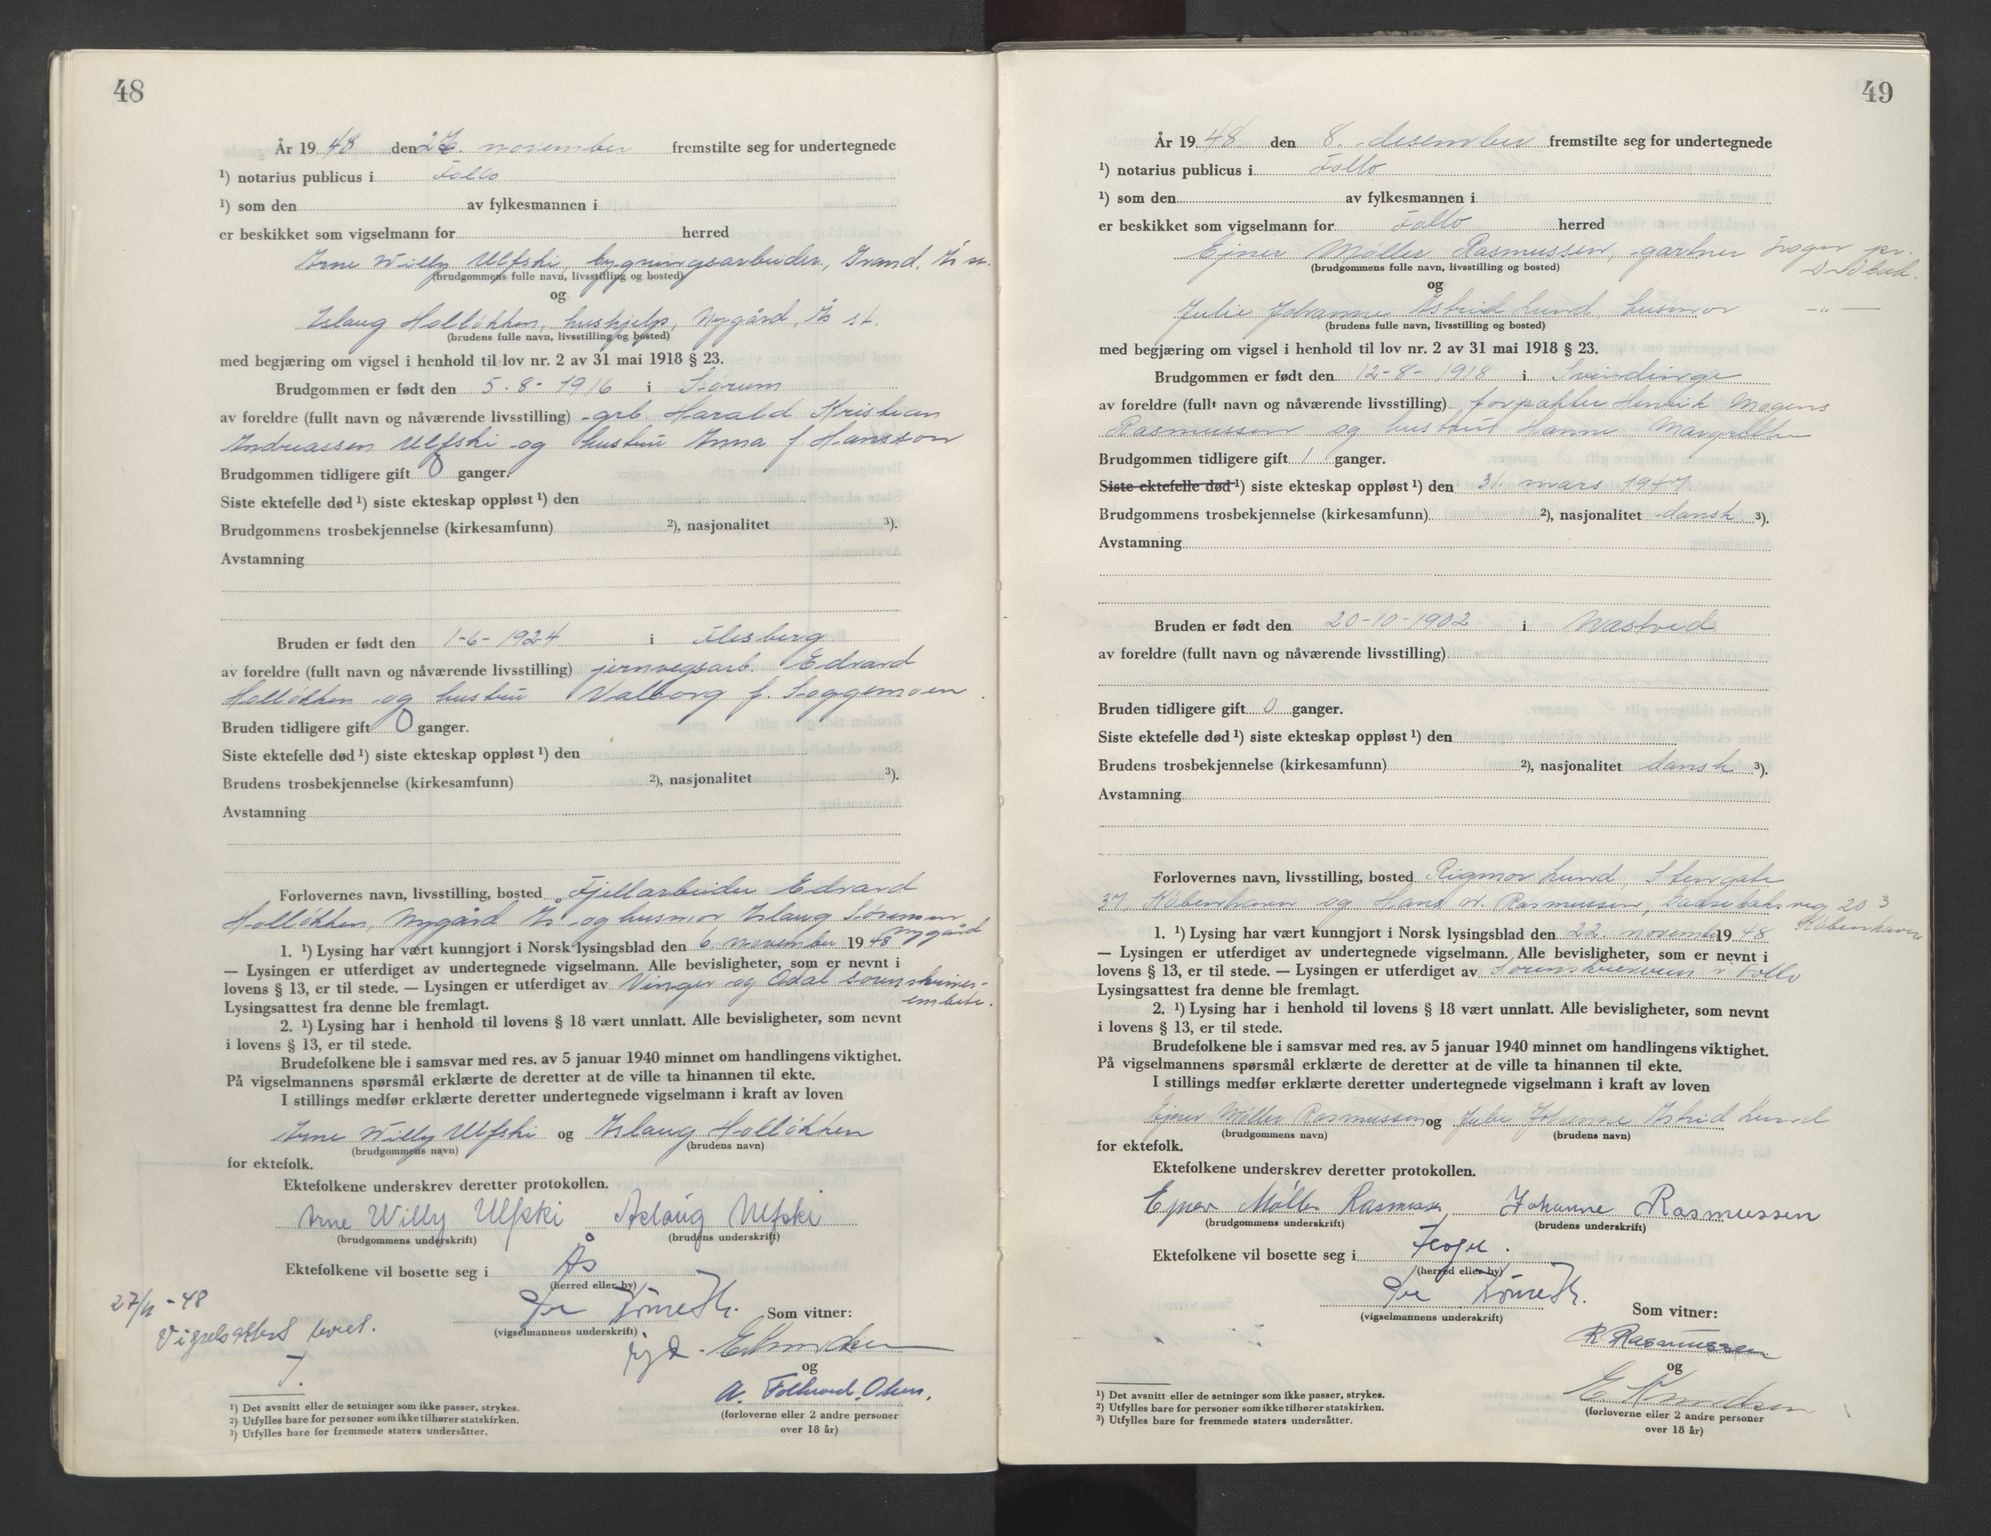 48
År 1948 den 26. november fremstilte seg for undertegnede
¹) notarius publicus i Follo
¹) som den av fylkesmannen i
er beskikket som vigselmann for herred
Arne Willy Ulfski, bygningsarbeider, Grand, Ås st.
(brudgommens fulle navn, livsstilling og bosted)
og
Aslaug Holløkken, hushjelp, Nygård, Ås st.
(brudens fulle navn, livsstilling og bosted)
med begjæring om vigsel i henhold til lov nr. 2 av 31 mai 1918 § 23.
Brudgommen er født den 5-8-1916 i Sørum
av foreldre (fullt navn og nåværende livsstilling) grb. Harald Kristian
Andreassen Ulfski og hustru Anna f. Hansson
Brudgommen tidligere gift 0 ganger.
Siste ektefelle død ¹) siste ekteskap oppløst ¹) den
Brudgommens trosbekjennelse (kirkesamfunn) ²), nasjonalitet ³).
Avstamning
Bruden er født den 1-6-1924 i Flesberg
av foreldre (fullt navn og nåværende livsstilling) jernvegsarb. Edvard
Holløkken og hustru Valborg f. Saggemoen.
Bruden tidligere gift 0 ganger.
Siste ektefelle død ¹) siste ekteskap oppløst ¹) den
Brudens trosbekjennelse (kirkesamfunn) ²), nasjonalitet ³).
Avstamning
Forlovernes navn, livsstilling, bosted Fjellarbeider Edvard
Holløkken, Nygård Ås og husmor Aslaug Sørensen
Nygård
1. ¹) Lysing har vært kunngjort i Norsk lysingsblad den 6. november 1948
— Lysingen er utferdiget av undertegnede vigselmann. Alle bevisligheter, som er nevnt i
lovens § 13, er til stede. — Lysingen er utferdiget av Vinger og Odal sorenskriver-
embete.
Lysingsattest fra denne ble fremlagt.
2. ¹) Lysing har i henhold til lovens § 18 vært unnlatt. Alle bevisligheter, som nevnt
i lovens § 13, er til stede.
Brudefolkene ble i samsvar med res. av 5 januar 1940 minnet om handlingens viktighet.
På vigselmannens spørsmål erklærte de deretter at de ville ta hinannen til ekte.
I stillings medfør erklærte deretter undertegnede vigselmann i kraft av loven
Arne Willy Ulfski og Aslaug Holløkken
(brudgommens navn) (brudens navn)
for ektefolk.
Ektefolkene underskrev deretter protokollen.
Arne Willy Ulfski Aslaug Ulfski
(brudgommens underskrift) (brudens underskrift)
Ektefolkene vil bosette seg i Ås
(herred eller by)
27/11-48
Vigselsattest levert.
Som vitner:
(vigselmannens underskrift)
E Knudsen
og
A. Folkvord Olsen.
(forloverne eller 2 andre personer
over 18 år)
¹) Det avsnitt eller de setninger som ikke passer, strykes.
²) Utfylles bare for personer som ikke tilhører statskirken.
³) Utfylles bare for fremmede staters undersåtter.
49
År 1948 den 8. desember fremstilte seg for undertegnede
¹) notarius publicus i Follo
¹) som den av fylkesmannen i
er beskikket som vigselmann for Follo herred
Ejner Møller Rasmussen, gartner Frogn pr.
Drøbak.
(brudgommens fulle navn, livsstilling og bosted)
og
Julie Johanne Astrid Lund, husmor —"—
(brudens fulle navn, livsstilling og bosted)
med begjæring om vigsel i henhold til lov nr. 2 av 31 mai 1918 § 23.
Brudgommen er født den 12-8-1918 i Svindinge
av foreldre (fullt navn og nåværende livsstilling) forpakter Henrik Mogens
Rasmussen og hustru Hanne Margrethe
Brudgommen tidligere gift 1 ganger.
Siste ektefelle død ¹) siste ekteskap oppløst ¹) den 31. mars 1947.
Brudgommens trosbekjennelse (kirkesamfunn) ²), nasjonalitet dansk ³).
Avstamning
Bruden er født den 20-10-1902 i Næstved
av foreldre (fullt navn og nåværende livsstilling)
Bruden tidligere gift 0 ganger.
Siste ektefelle død ¹) siste ekteskap oppløst ¹) den
Brudens trosbekjennelse (kirkesamfunn) ²), nasjonalitet dansk ³).
Avstamning
Forlovernes navn, livsstilling, bosted Rigmor Lund, Stengate
37, København og Hans W. Rasmussen, 20 3
København
1. ¹) Lysing har vært kunngjort i Norsk lysingsblad den 22. november 1948
— Lysingen er utferdiget av undertegnede vigselmann. Alle bevisligheter, som er nevnt i
lovens § 13, er til stede. — Lysingen er utferdiget av Sorenskriveren i Follo
Lysingsattest fra denne ble fremlagt.
2. ¹) Lysing har i henhold til lovens § 18 vært unnlatt. Alle bevisligheter, som nevnt
i lovens § 13, er til stede.
Brudefolkene ble i samsvar med res. av 5 januar 1940 minnet om handlingens viktighet.
På vigselmannens spørsmål erklærte de deretter at de ville ta hinannen til ekte.
I stillings medfør erklærte deretter undertegnede vigselmann i kraft av loven
Ejner Møller Rasmussen og Julie Johanne Astrid Lund
(brudgommens navn) (brudens navn)
for ektefolk.
Ektefolkene underskrev deretter protokollen.
Ejner Møller Rasmussen Johanne Rasmussen
(brudgommens underskrift) (brudens underskrift)
Ektefolkene vil bosette seg i Frogn.
(herred eller by)
Som vitner:
(vigselmannens underskrift)
R. Rasmussen
og
E Knudsen
(forloverne eller 2 andre personer
over 18 år)
¹) Det avsnitt eller de setninger som ikke passer, strykes.
²) Utfylles bare for personer som ikke tilhører statskirken.
³) Utfylles bare for fremmede staters undersåtter.